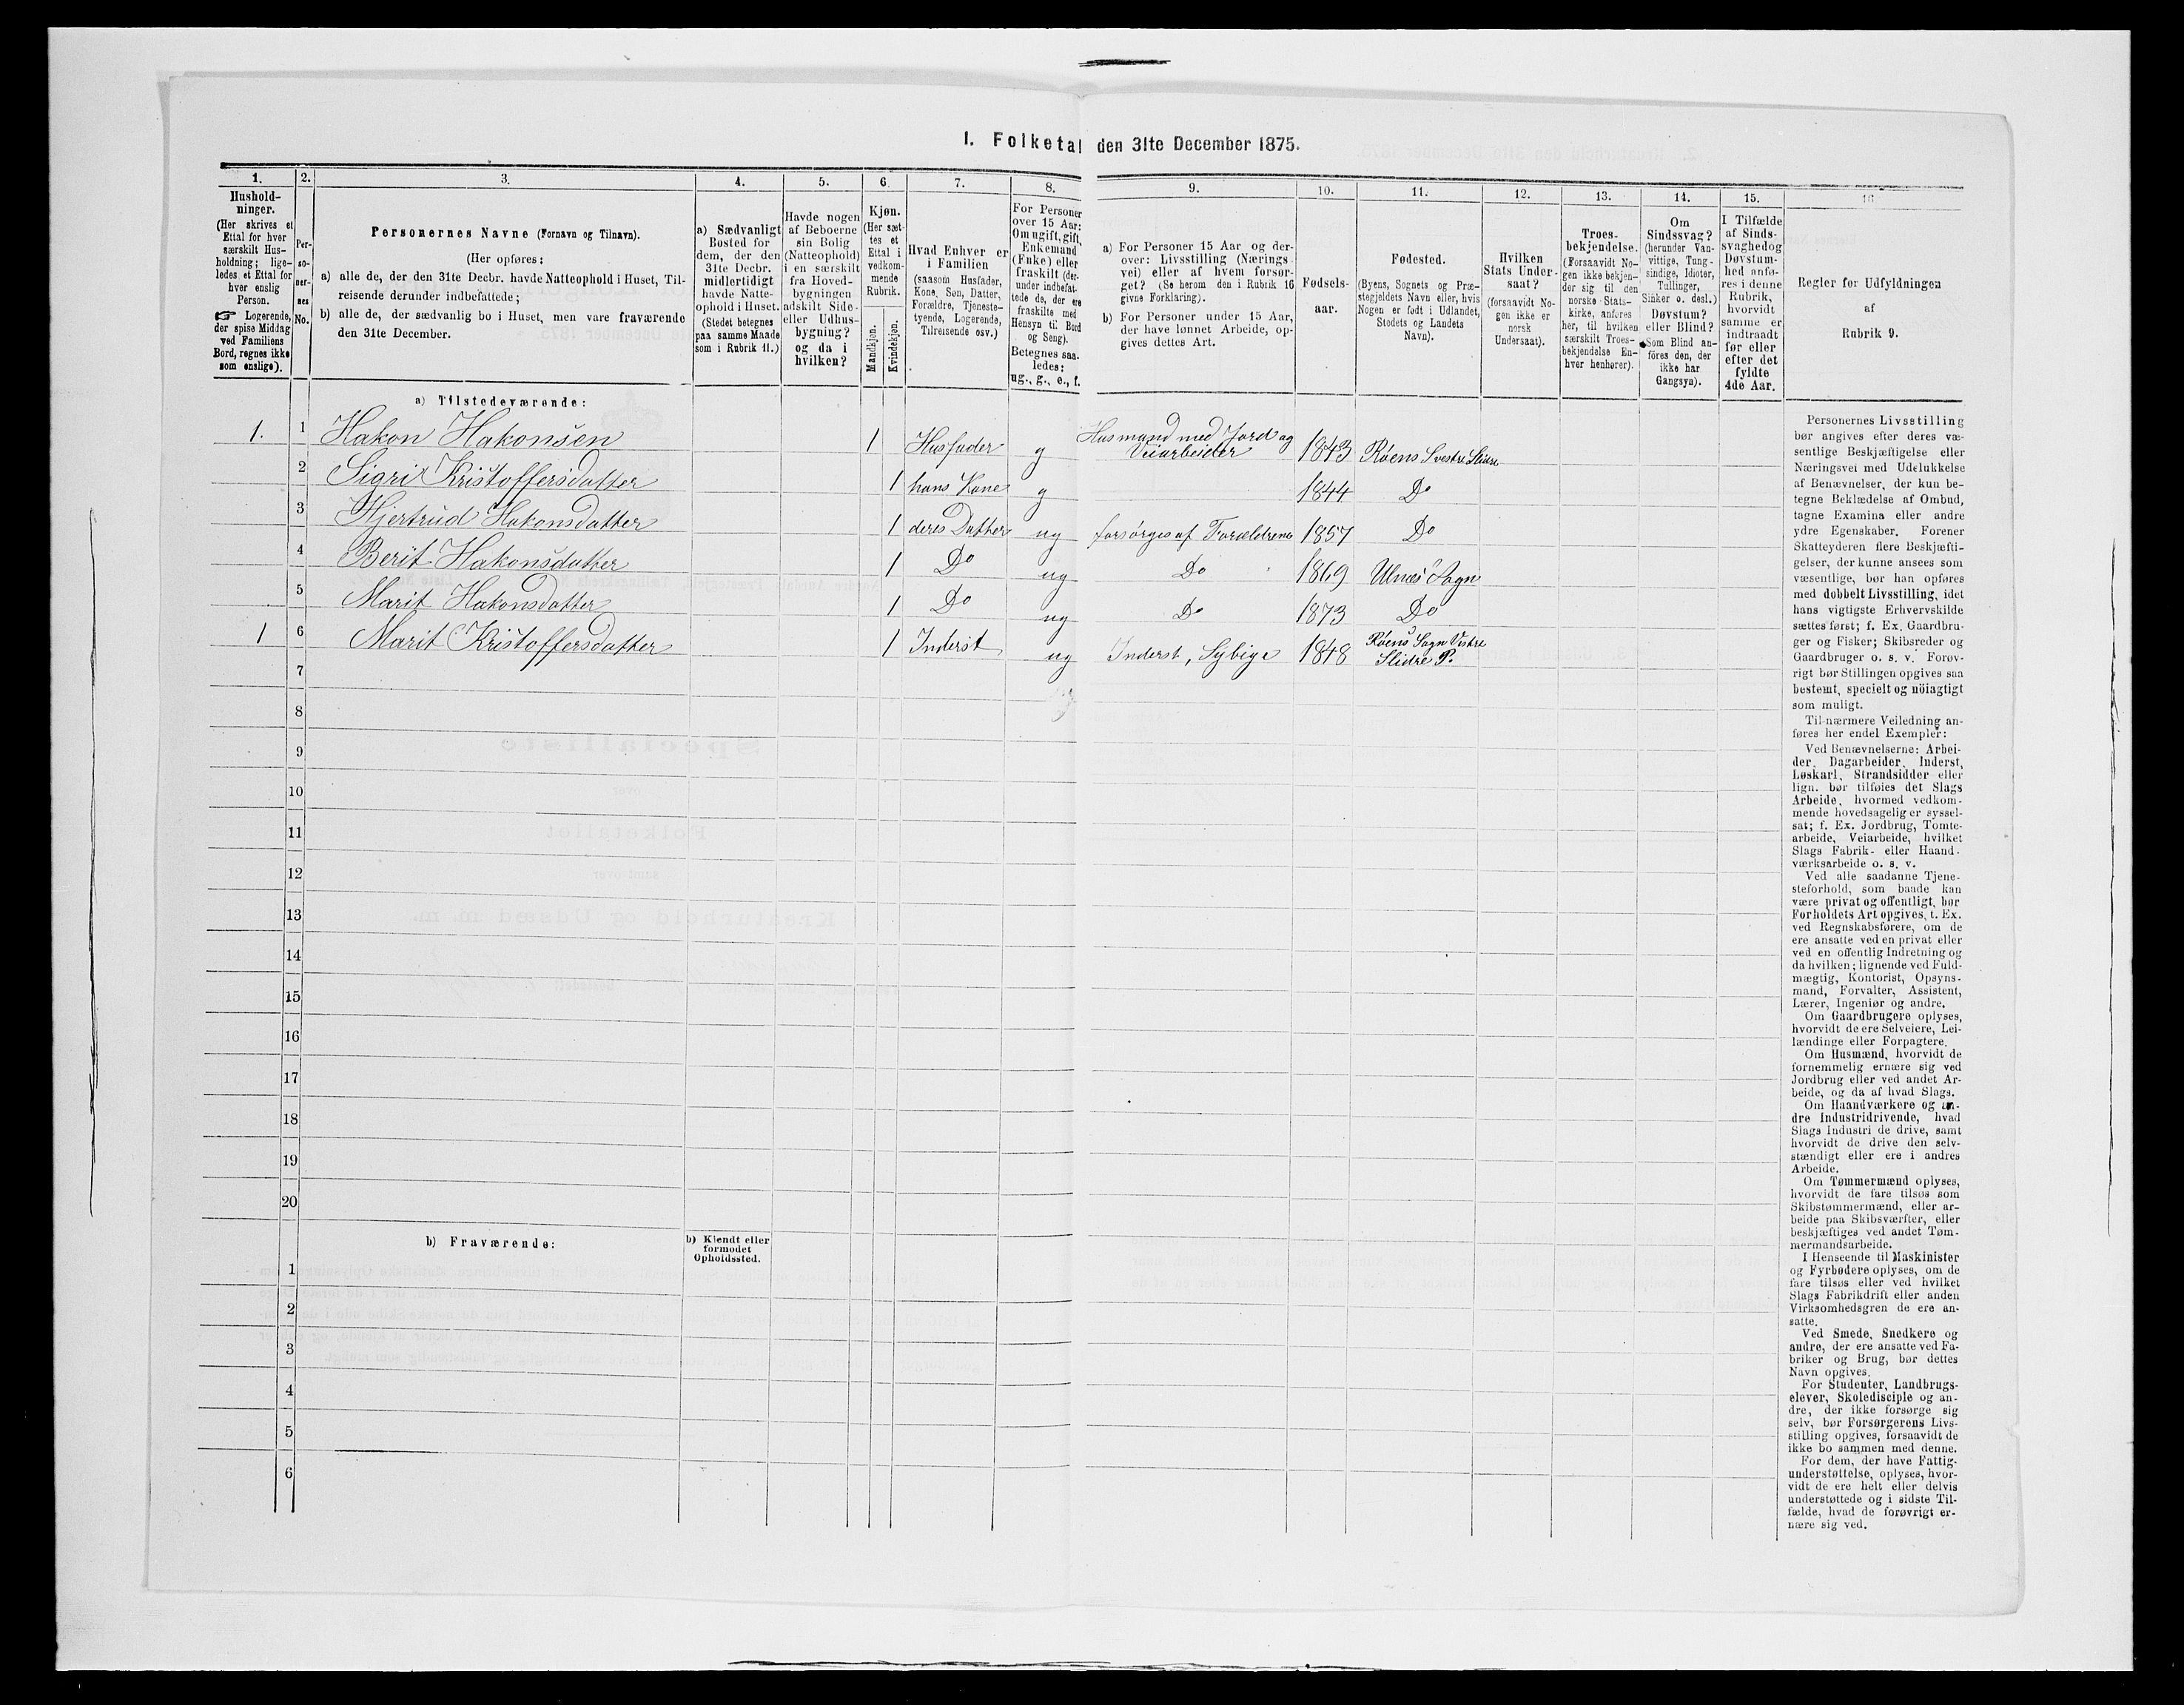 I. Folketal den 31te December 1875.
1. 2. 3. 4. 5. 6. 7. 8. 9. 10. 11. 12. 13. 14. 15. 16
Hushold-
ninger.
(Her skrives et
Ettal for hver
særskilt Hus-
holdning; lige-
ledes et Ettal for
hver enslig
Person.
☞ Logerende,
der spise Middag
ved Familiens
Bord, regnes ikke
som enslige).
Per-
so-
ner-
nes
No.
Personernes Navne (Fornavn og Tilnavn).
(Her opføres:
a) alle de, der den 31te Decbr. havde Natteophold i Huset, Til-
reisende derunder indbefattede;
b) alle de, der sædvanlig bo i Huset, men vare fraværende
den 31te December.
a) Sædvanligt
Bosted for
dem, der den
31te Decbr.
midlertidigt
havde Natte-
ophold i Huset.
(Stedet betegnes
paa samme Maade
som i Rubrik 11.)
Havde nogen
af Beboerne
sin Bolig
(Natteophold)
i en særskilt
fra Hoved-
bygningen
adskilt Side-
eller Udhus-
bygning?
og da i
hvilken?
Kjøn.
(Her sæt-
tes et
Ettal i
vedkom-
mende
Rubrik.
Mandkjøn.
Kvindekjøn.
Hvad Enhver er
i Familien
(saasom Husfader,
Kone, Søn, Datter,
Forældre, Tjeneste-
tyende, Logerende,
Tilreisende osv.)
For Personer
over 15 Aar:
Om ugift, gift,
Enkemand
(Enke) eller
fraskilt (der-
under indbefat-
tede de, der ere
fraskilte med
Hensyn til Bord
og Seng).
Betegnes saa-
ledes:
ug., g., e., f.
a) For Personer 15 Aar og der-
over: Livsstilling (Nærings-
vei) eller af hvem forsør-
get? (Se herom den i Rubrik 16
givne Forklaring).
b) For Personer under 15 Aar,
der have lønnet Arbeide, op-
gives dettes Art.
Fødsels-
aar.
Fødested.
(Byens, Sognets og Præ-
stegjeldets Navn eller, hvis
Nogen er født i Udlandet,
Stedets og Landets
Navn).
Hvilken
Stats Under-
saat?
(forsaavidt No-
gen ikke er
norsk
Undersaat).
Troes-
bekjendelse.
(Forsaavidt No-
gen ikke bekjen-
der sig til den
norske Stats-
kirke, anføres
her, til hvilken
særskilt Troes-
bekjendelse En-
hver henhører).
Om
Sindssvag?
(herunder Van-
vittige, Tung-
sindige, Idioter,
Tullinger,
Sinker o. desl.)
Døvstum?
eller Blind?
Som Blind an-
føres den, der
ikke har
Gangsyn).
I Tilfælde
af Sinds-
svaghedog
Døvstum-
hed anfø-
res i denne
Rubrik,
hvorvidt
samme er
indtraadt
før eller
efter det
fyldte
4de Aar.
Regler for Udfyldningen
af
Rubrik 9.
a) Tilstedeværende:
1. 1 Hakon Hakonsen 1 Husfader g Husmand med Jord og Veiarbeider 1843 Røens S vestre Slidre
2 Sigri Kristoffersdatter 1 hans Kone g 1844 Do
3 Hjertrud Hakonsdatter 1 deres Datter ug forsørges af Forældrene 1857 Do
4 Berit Hakonsdatter 1 Do ug Do 1869 Ulnes Sogn
5 Marit Hakonsdatter 1 Do ug Do 1873 Do
1 6 Marit Kristoffersdatter 1 Inderst ug Inderst, Sypige 1848 Røens Sogn Vestre Slidre P.
7
8
9
10
11
12
13
14
15
16
17
18
19
20
b) Fraværende:
b) Kjendt eller
formodet
Opholdssted.
1
2
3
4
5
6
Personernes Livsstilling
bør angives efter deres væ-
sentlige Beskjæftigelse eller
Næringsvei med Udelukkelse
af Benævnelser, der kun be-
tegne Beklædelse af Ombud,
tagne Examina eller andre
ydre Egenskaber. Forener
Skatteyderen flere Beskjæfti-
gelser, der kunne ansees som
væsentlige, bør han opføres
med dobbelt Livsstilling, idet
hans vigtigste Erhvervskilde
sættes først; f. Ex. Gaardbru-
ger og Fisker; Skibsreder og
Gaardbruger o. s. v. Forøv-
rigt bør Stillingen opgives saa
bestemt, specielt og nöiagtigt
som muligt.
Til nærmere Veiledning an-
føres her endel Exempler:
Ved Benævnelserne: Arbei-
der, Dagarbeider, Inderst,
Løskarl, Strandsidder eller
lign. bør tilføies det Slags
Arbeide, hvormed vedkom-
mende hovedsagelig er syssel-
sat; f. Ex. Jordbrug, Tomte-
arbeide, Veiarbeide, hvilket
Slags Fabrik- eller Haand-
værksarbeide o. s. v.
Ved alle saadanne Tjene-
steforhold, som baade kan
være privat og offentligt, bør
Forholdets Art opgives, t. Ex.
ved Regnskabsførere, om de
ere ansatte ved en privat eller
ved en offentlig Indretning og
da hvilken; lignende ved Fuld-
mægtig, Kontorist, Opsyns-
mand, Forvalter, Assistent,
Lærer, Ingeniør og andre.
Om Gaardbrugere oplyses,
hvorvidt de ere Selveiere, Lei-
lændinge eller Forpagtere.
Om Husmænd, hvorvidt de
fornemmelig ernære sig ved
Jordbrug eller ved andet Ar-
beide, og da af hvad Slags.
Om Haandværkere og an-
dre Industridrivende, hvad
Slags Industri de drive, samt
hvorvidt de drive den selv-
stændigt eller ere i andres
Arbeide.
Om Tømmermænd oplyses,
hvorvidt de fare tilsøs som
Skibstømmermænd, eller ar-
beide paa Skibsværfter, eller
beskjæftiges ved andet Tøm-
mermandsarbeide.
I Henseende til Maskinister
og Fyrbødere oplyses, om de
fare tilsøs eller ved hvilket
Slags Fabrikdrift eller anden
Virksomhedsgren de ere an-
satte.
Ved Smede, Snedkere og
andre, der ere ansatte ved Fa-
briker og Brug, bør dettes
Navn opgives.
For Studenter, Landbrugs-
elever, Skoledisciple og an-
dre, der ikke forsørge sig
selv, bør Forsørgerens Livs-
stilling opgives, forsaavidt de
ikke bo sammen med denne.
For dem, der have Fattig-
understøttelse, oplyses, hvor-
vidt de ere helt eller delvis
understøttede og i sidste Til-
fælde, hvad de forøvrigt er-
nære sig ved.